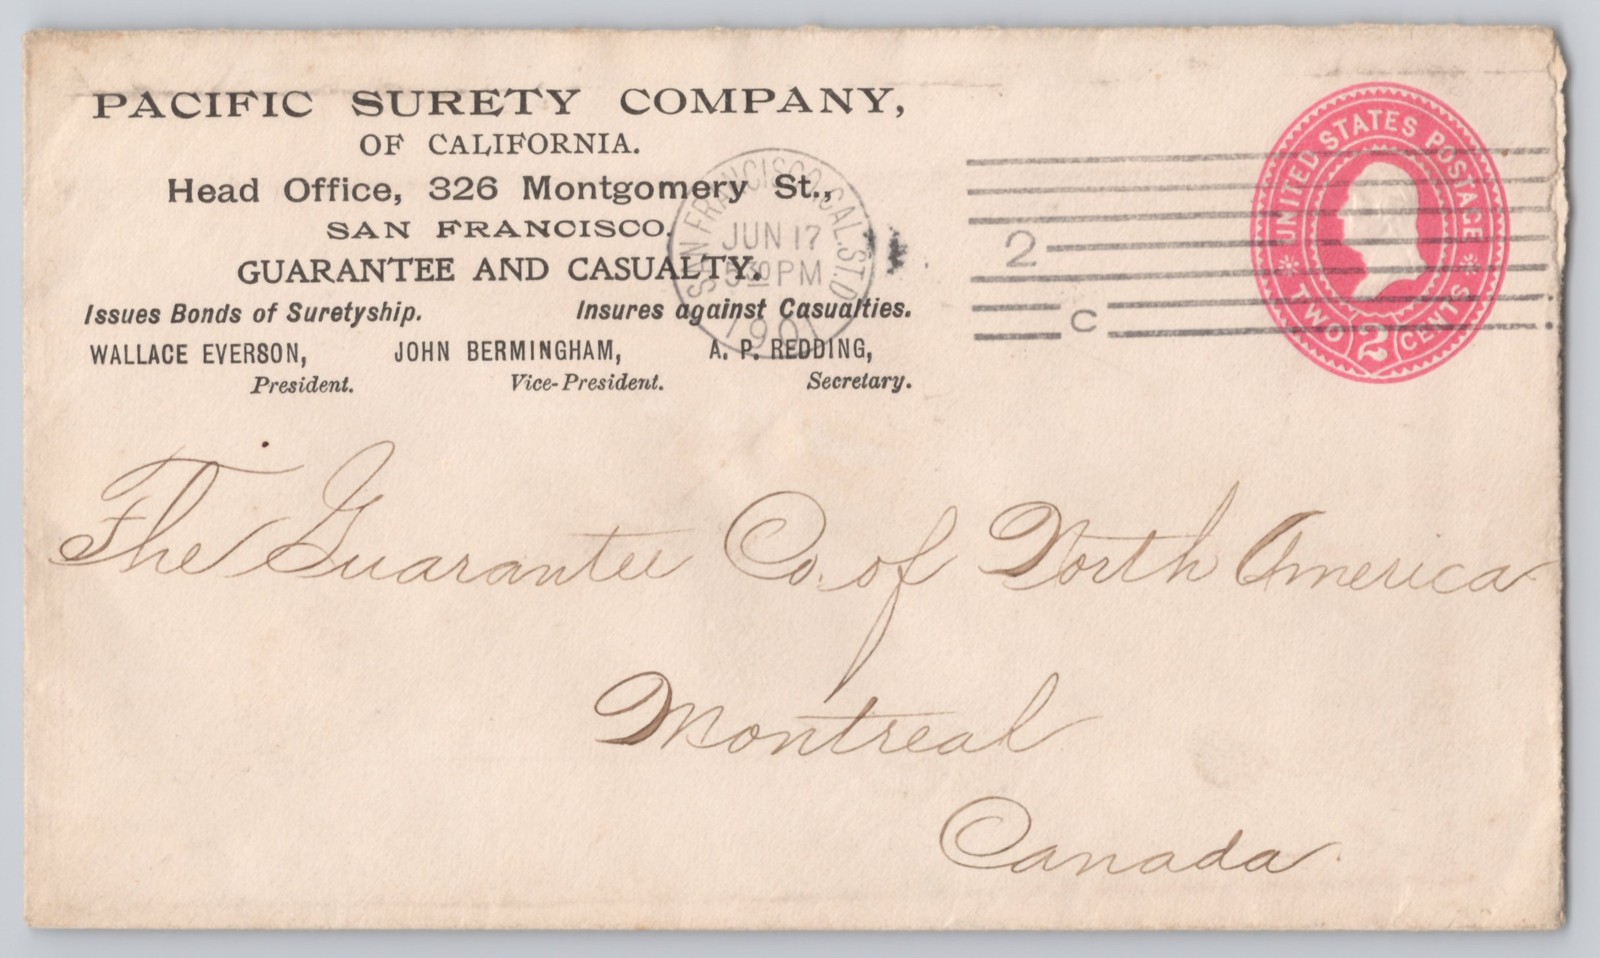 PACIFIC SURETY COMPANY,
OF CALIFORNIA.
Head Office, 326 Montgomery St.,
SAN FRANCISCO.
GUARANTEE AND CASUALTY.
Issues Bonds of Suretyship. Insures against Casualties.
WALLACE EVERSON, JOHN BERMINGHAM, A. P. REDDING,
President. Vice-President. Secretary.
SAN FRANCISCO, CAL. ST'D
JUN 17
5 30 PM
1901
2
C
UNITED STATES POSTAGE
TWO 2 CENTS
The Guarantee Co. of North America
Montreal
Canada